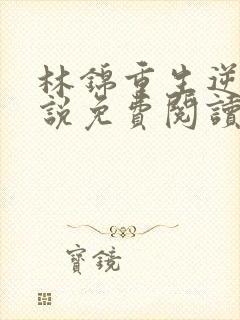 林錦重生逆
說免費閱讀
寶鏡